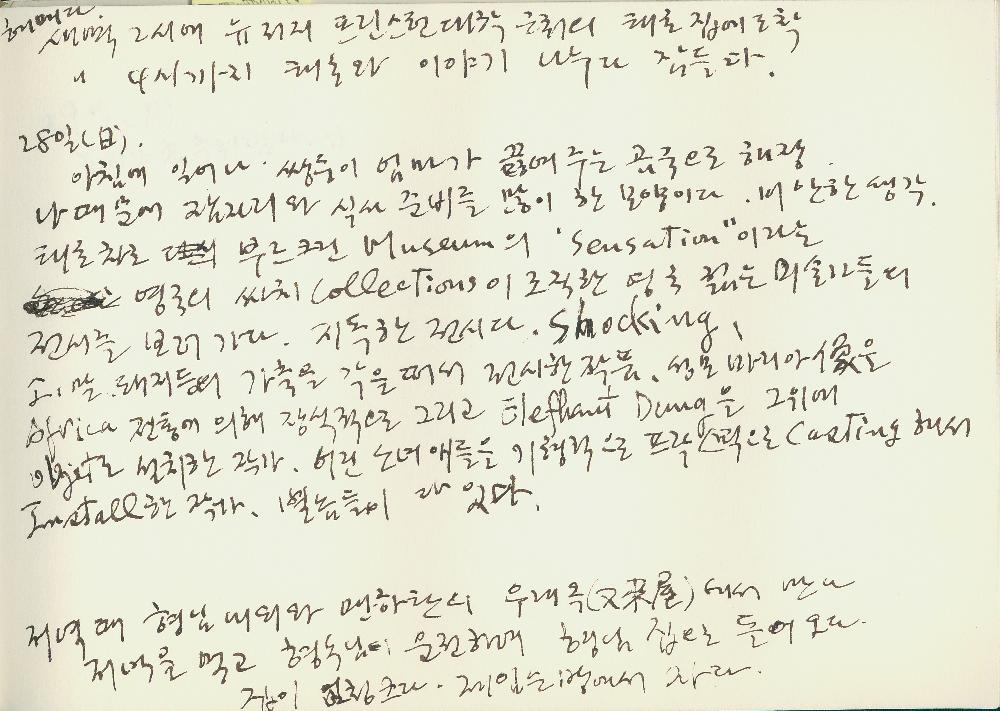 헤매다.
새벽 2시에 뉴저지 프린스턴대학 근처의 태호 집에 도착
〃 4시까지 태호와 이야기 나누다 잠들다.
28일(日).
아침에 일어나 쌍둥이 엄마가 끓여주는 곰국으로 해장.
나 때문에 잠자리와 식사 준비를 많이 한 모양이다. 미안한 생각.
태호차로 부르크린 Museum의 'Sensation"이라는
영국의 싸치 Collections이 조직한 영국 젊은 미술가들의
전시를 보러 가다. 지독한 전시다. Shocking,
소, 말, 돼지등의 가축을 각을 떠서 전시한 작품, 성모 마리아 像을
Africa 전통에 의해 장식적으로 그리고 Elefhant Dung을 그위에
object로 설치하는 작가. 어린 소녀애들을 기형적으로 프라스틱으로 Casting 해서
Install한 작가. 별놈들이 다 있다.
저녁때 형님 내외와 맨하탄의 우래옥(又來屋)에서 만나
저녁을 먹고 형수님이 운전하며 형님 집으로 들어오다.
집이 엄청 크다. 에서 자다.